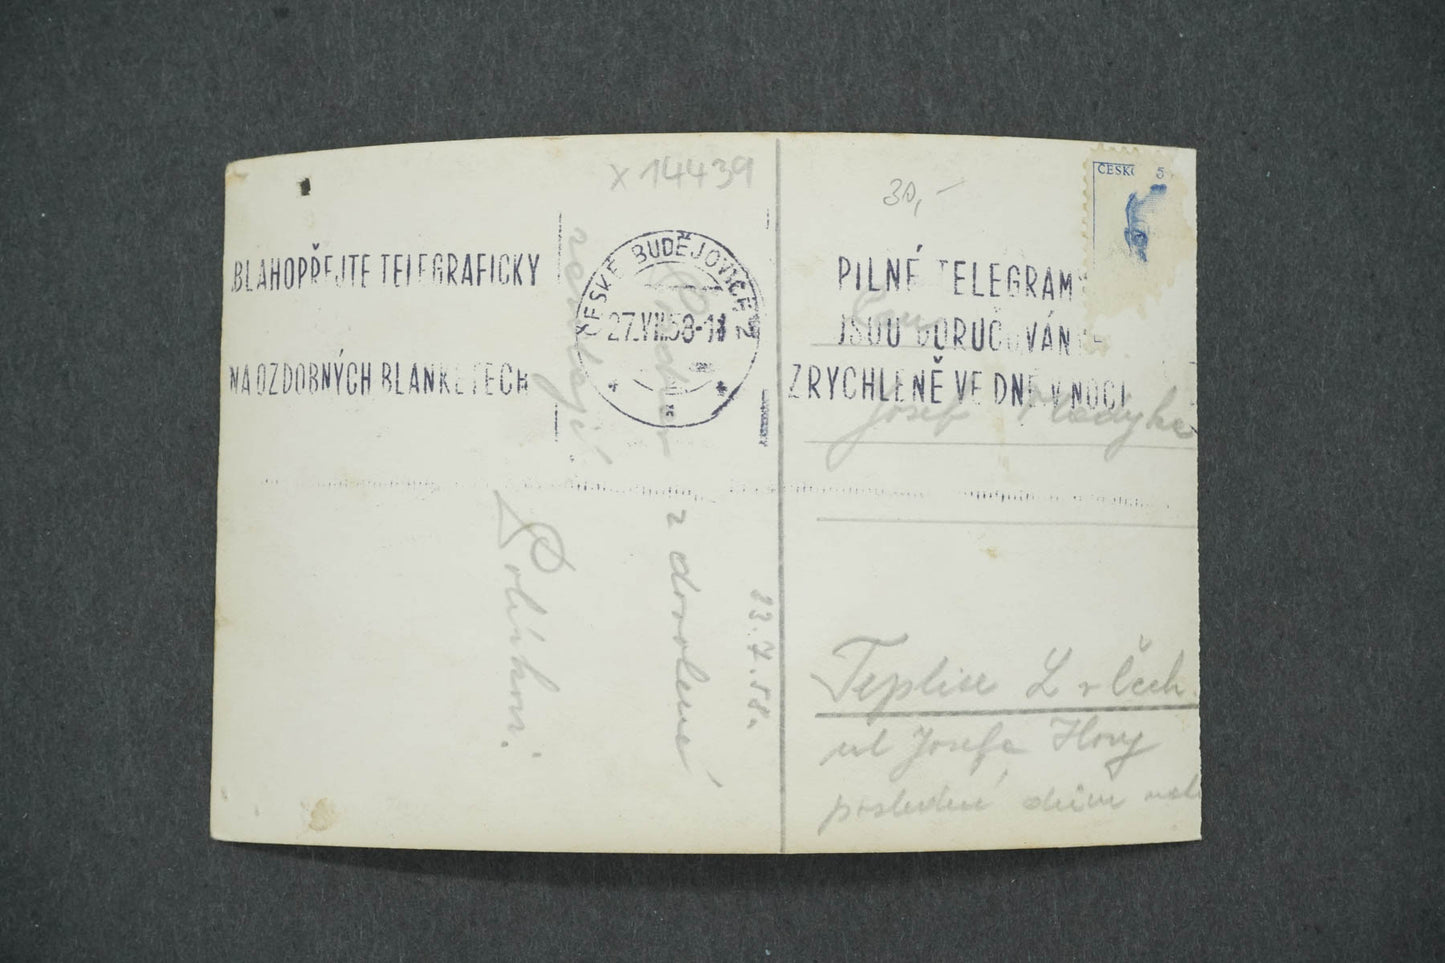 x 14439
BLAHOPŘEJTE TELEGRAFICKY
NA OZDOBNÝCH BLANKETECH
ČESKÉ BUDĚJOVICE 2
27.VII.58-18
23.7.58.
z dovolené
zasílají
30,-
ČESKO 5
PILNÉ TELEGRAMY
JSOU DORUČOVÁNY
ZRYCHLENĚ VE DNE V NOCI
Josef
Teplice L v Čech.
ul Josefa Hory
poslední dům